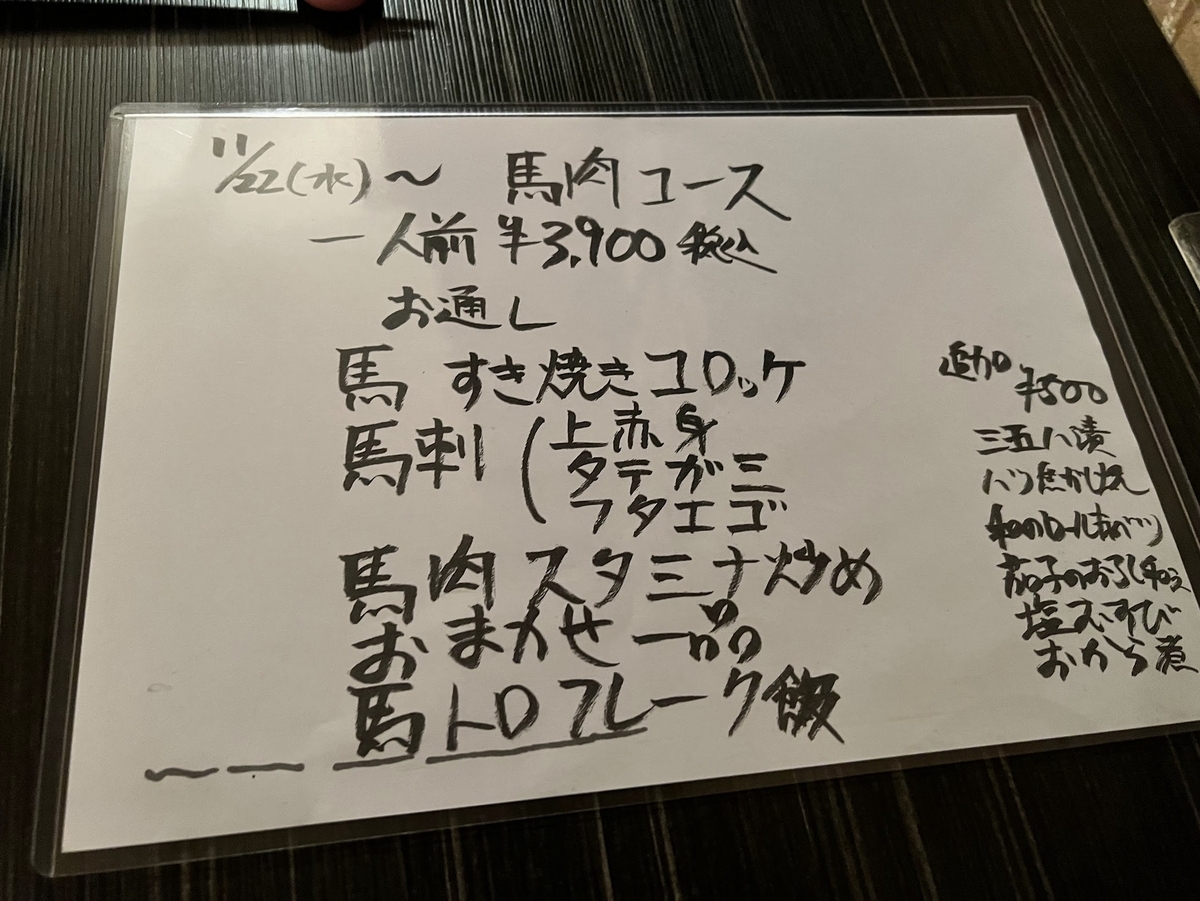 11/22(水)〜 馬肉コース
一人前 ¥3,900 税込
お通し
馬 すき焼きコロッケ
馬刺 (上赤身
タテガミ
フタエゴ
馬肉スタミナ炒め
おまかせ一品
馬トロフレーク飯
追加 ¥500
三五八漬
ハツ焦がし焼
和のロールキャベツ
茄子のおろし和え
塩むすび
おから煮